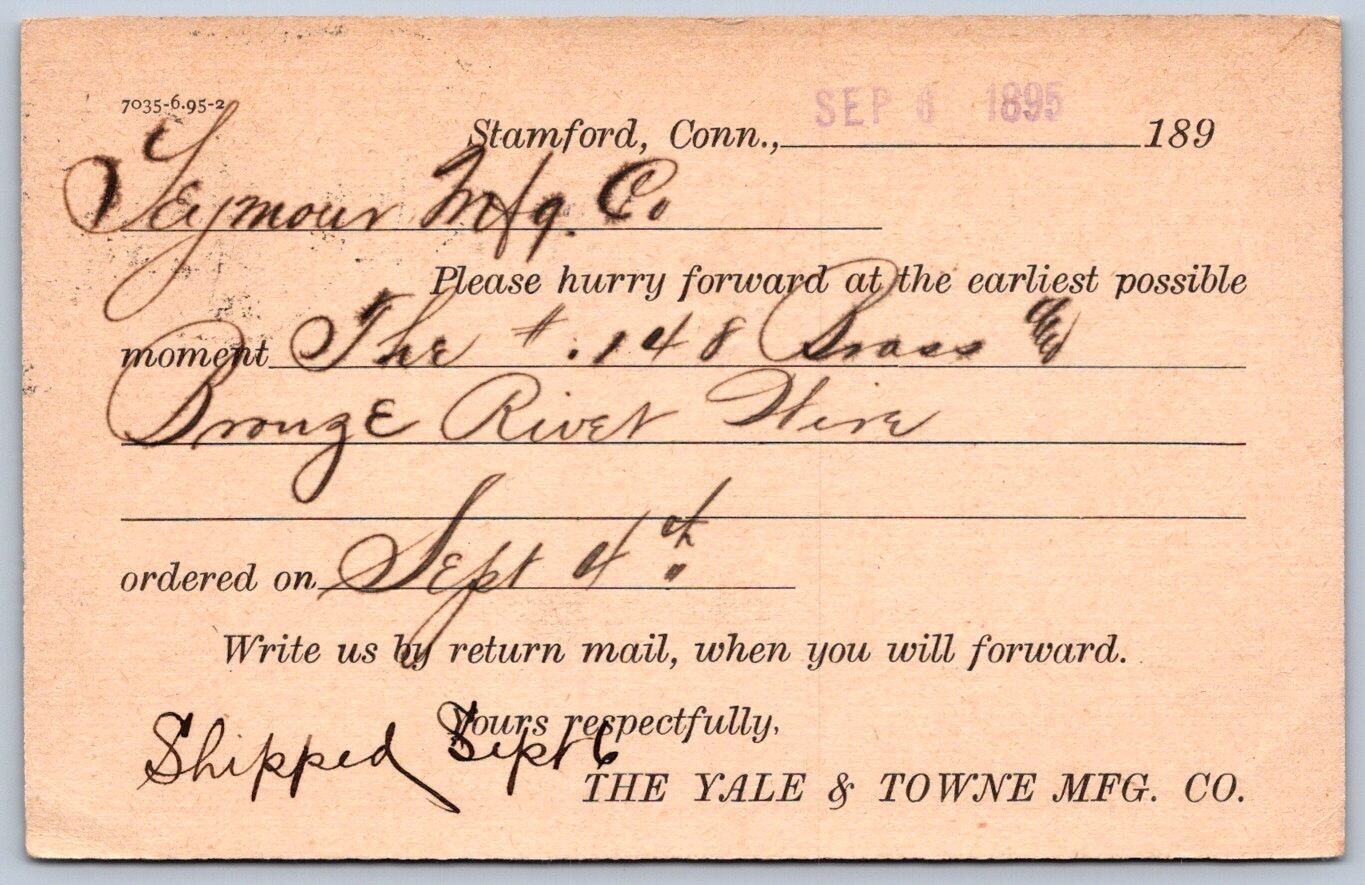 7035-6.95-2
SEP 6 1895
Stamford, Conn., 189
Seymour Mfg. Co
Please hurry forward at the earliest possible
moment The #.148 Brass &
Bronze Rivet Wire
ordered on Sept 4th
Write us by return mail, when you will forward.
Yours respectfully,
Shipped Sept 6
THE YALE & TOWNE MFG. CO.